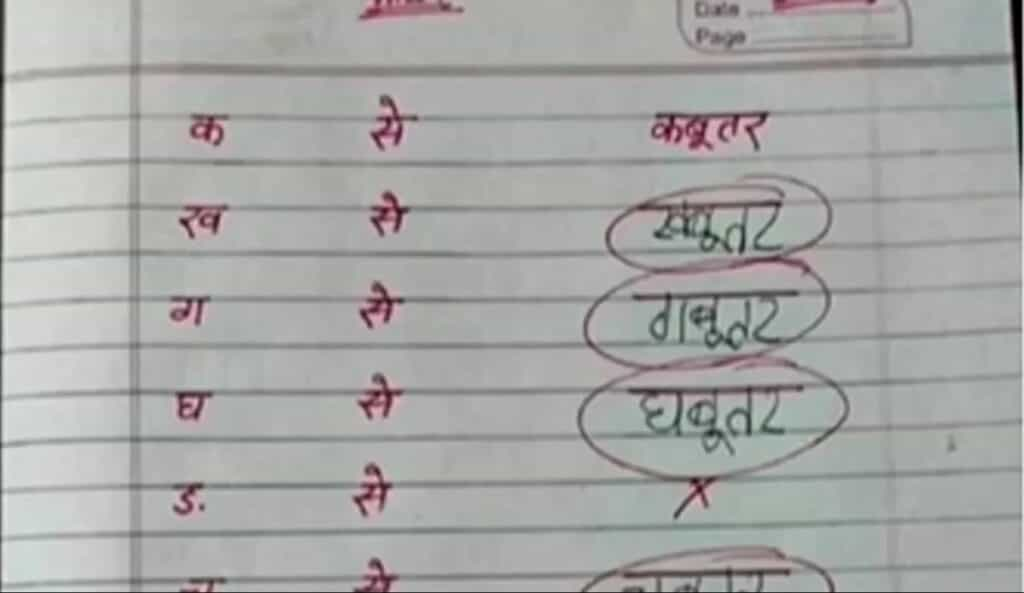 Date
Page
क से कबूतर
ख से खबूतर
ग से गबूतर
घ से घबूतर
ङ से x
से